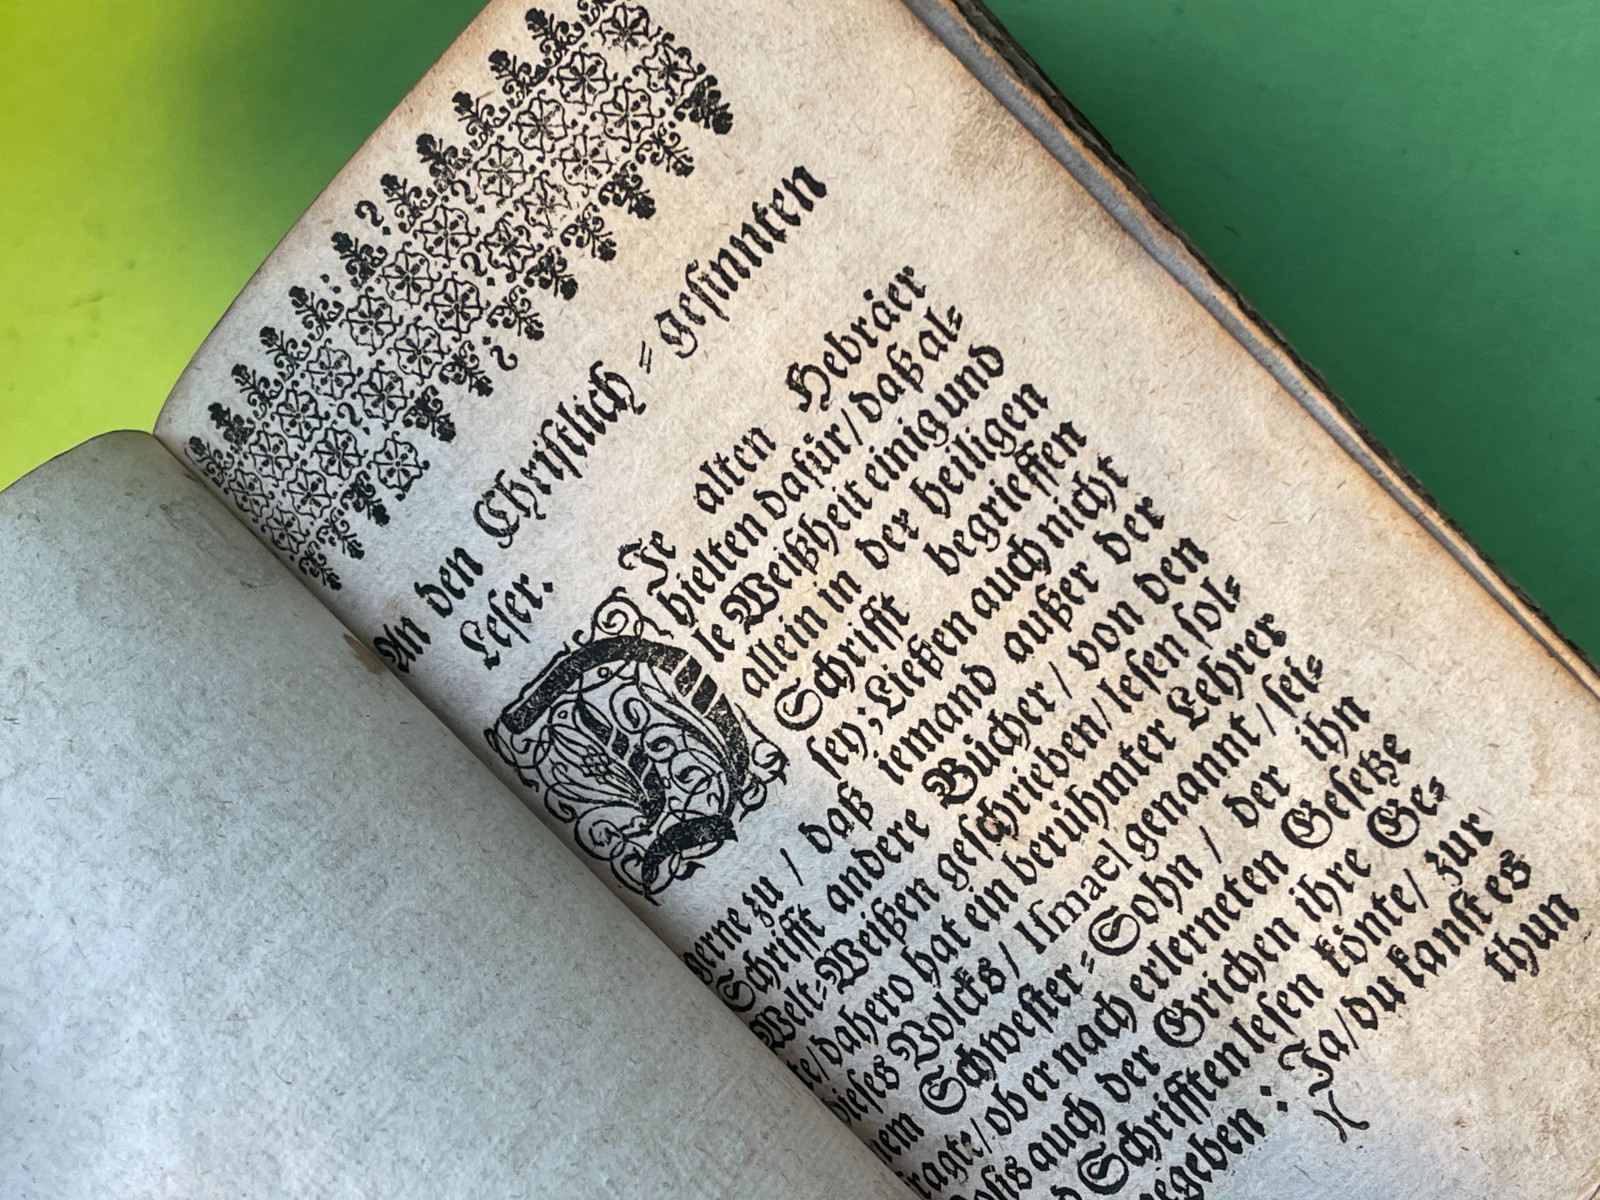 An den Christlich = gesinnten
Leser.
DJe alten Hebråer
hielten dafür/daß al-
le Weißheit einig und
allein in der heiligen
Schrifft begrieffen
sey; Ließen auch nicht
gerne zu / daß iemand außer der
Schrifft andere Bücher / von den
Welt-Weißen geschrieben/ lesen sol-
te/ dahero hat ein berühmter Lehrer
dieses Volcks / Ismael genannt / sei-
nem Schwester-Sohn / der ihn
fragte/ ob er nach erlerneten Gesetze
Mosis auch der Grichen ihre Ge-
Schrifften lesen könte/ zur
gegeben : Ja/ du kanst es
)( thun